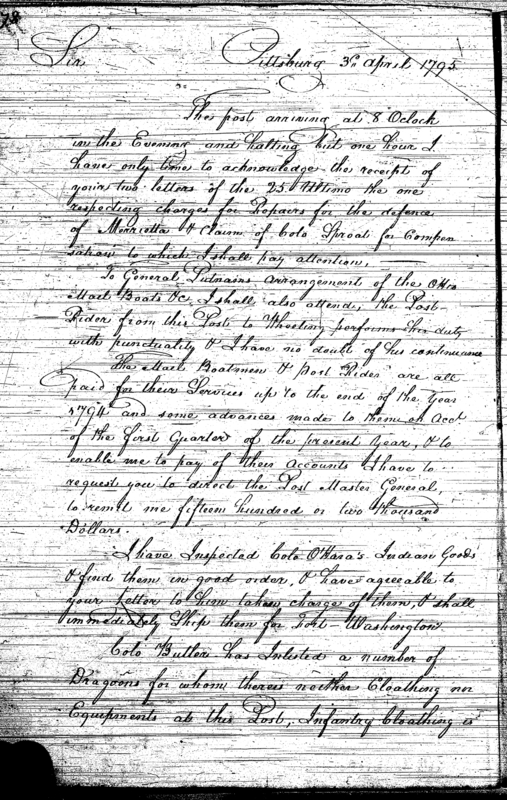 Sir
Pittsburg 3d April 1795
The post arriving at 8 Oclock
in the Evening and halting but one hour I
have only time to acknowledge the receipt of
your two letters of the 25 Ultimo the one
respecting charges for Repairs for the defence
of Marrietta & Claim of Colo Sproat for Compen
sation to which I shall pay attention,
To General Putnams arrangement of the Ohio
Mail Boats &c I shall also attend, the Post
Rider from this Post to Wheeling performs his duty
with punctuality & I have no doubt of his continuance
The Mail Boatmen & Post Rider are all
paid for their Services up to the end of the Year
1794 and some advances made to them on Acct
of the first Quarter of the present Year, & to
enable me to pay of their accounts I have to
request you to direct the Post Master General,
to remit me fifteen hundred or two thousand
Dollars.
I have Inspected Colo O'Hara's Indian Goods
& find them in good order, & have agreeable to
your Letter to him taken charge of them, & shall
immediately Ship them for Fort Washington
Colo Butler has Inlisted a number of
Dragoons for whom there is neither Cloathing nor
Equipments at this Post, Infantry Cloathing is